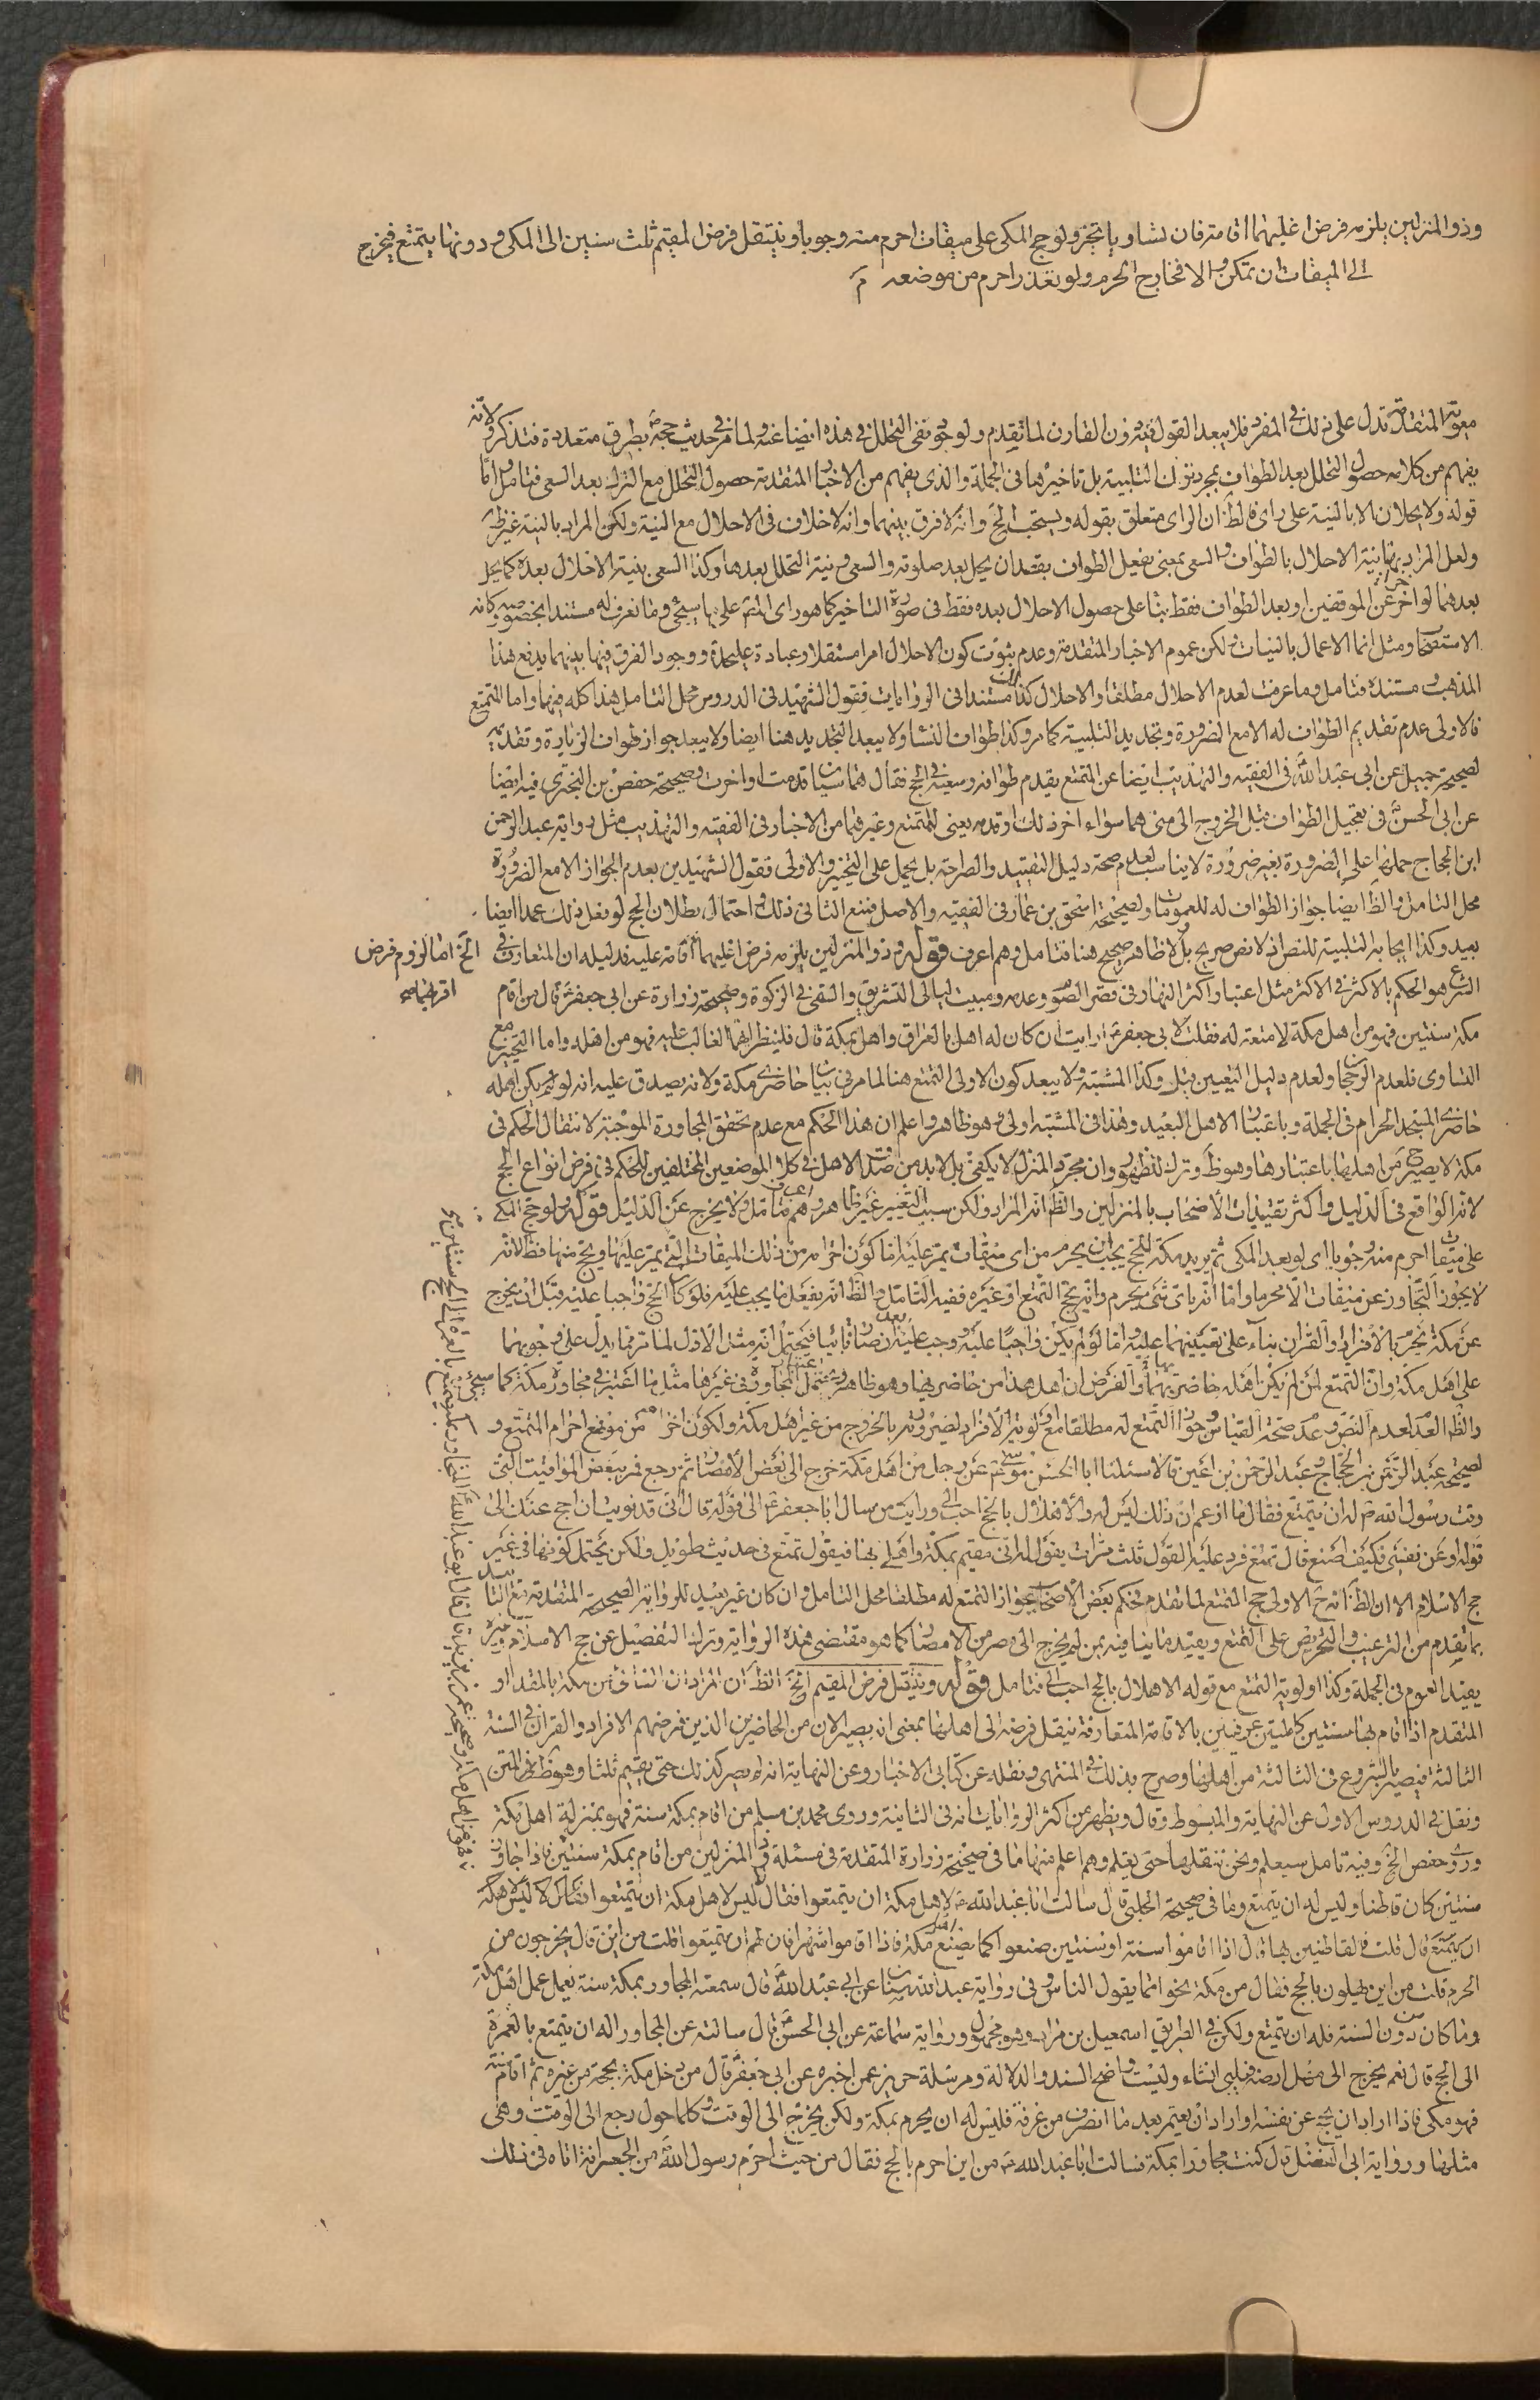 وذو المنزلين يلزمه فرض اغلبهما اقامة فان تساويا تخير ولو حج المكى على ميقات احرم منه وجوبا وينتقل فرض المقيم ثلث سنين الى المكى ودونها يتمتع فيخرج
الى الميقات ان تمكن والا فخارج الحرم ولو تعذر احرم من موضعه
المتقدمة تدل على ذلك فى المفرد فلا يبعد القول به دون القارن لما تقدم ولوجود نفى التحلل فى هذه ايضا عنه ولما مر فى حديث حجه بطرق متعددة فتذكر ولانه
يفهم من كلامه حصول التحلل بعد الطواف بمجرد ترك التلبية بل تاخيرها فى الجملة والذى يفهم من الاخبار المتقدمة حصول التحلل مع الترك بعد السعى فتامل واما
قوله ولا يحلان الا بالنية على راى فالظ ان الراى متعلق بقوله ويستحب الخ وانه لا فرق بينهما وانه لا خلاف فى الاحلال مع النية ولكن المراد بالنية غير ظ
ولعل المراد بها نية الاحلال بالطواف والسعى بمعنى يفعل الطواف بقصد ان يحل بعد صلوته والسعى ونية التحلل بعدها وكذا السعى بنية الاحلال بعده كما يحل
بعدهما لو اخر عن الموقفين او بعد الطواف فقط بناء على حصول الاحلال بعده فقط فى صورة التاخير كما هو راى الشيخ على ما سيجئ وما نعرف له مستندا بخصوصه وكانه
الاستصحاب ومثل انما الاعمال بالنيات ولكن عموم الاخبار المتقدمة وعدم ثبوت كون الاحلال امرا مستقلا وعبادة عليحدة ووجود الفرق فيها بينهما يدفع هذا
المذهب ومستنده فتامل وما عرفت لعدم الاحلال مطلقا والاحلال كذلك مستندا فى الروايات فقول الشهيد فى الدروس محل التامل هذا كله فيهما واما المتمتع
فالاولى عدم تقديم الطواف له الا مع الضرورة وتجديد التلبية كما مر وكذا طواف النساء ولا يبعد التجديد هنا ايضا ولا يبعد جواز طواف الزيارة وتقديمه
لصحيحة جميل عن ابى عبد الله فى الفقيه والتهذيب ايضا عن المتمتع يقدم طوافه وسعيه فى الحج فقال هما سيان قدمت او اخرت وصحيحة حفص بن البخترى فيه ايضا
عن ابى الحسن فى تعجيل الطواف قبل الخروج الى منى هما سواء اخر ذلك او قدمه يعنى للمتمتع وغيرهما من الاخبار فى الفقيه والتهذيب مثل رواية عبد الرحمن
ابن الحجاج حملها على الضرورة بغير ضرورة لا يناسب لعدم صحة دليل التقييد والطرحة بل يحمل على التخيير والاولى فقول الشهيدين بعدم الجواز الا مع الضرورة
محل التامل والظ ايضا جواز الطواف له للعمومات ولصحيحة اسحق بن عمار فى الفقيه والاصل فنع الثانى ذلك واحتمال بطلان الحج لو فعل ذلك عمدا ايضا
بعيد وكذا ايجابه التلبية للنص اذ لا نص صريح بل لا ظاهر صحيح هنا فتامل وهم اعرف قوله وذو المنزلين يلزمه فرض اغلبهما اقامة عليه فدليله ان المتعارف فى
الشرع هو الحكم بالاكثر فى الاكثر مثل اعتبار اكثر النهار فى قصر الصوم وعدمه ومبيت ليالى التشريق والسقى فى الزكوة وصحيحة زرارة عن ابى جعفر قال من اقام
مكة سنتين فهو من اهل مكة لا متعة له فقلت لابى جعفر ارايت ان كان له اهل بالعراق واهل بمكة قال فلينظر ايهما الغالب عليه فهو من اهله واما التخيير مع
التساوى فلعدم الرجحان ولعدم دليل التعيين قيل وكذا المشتبه ولا يبعد كون الاولى التمتع هنا لما مر فى بيان حاضرى مكة ولانه يصدق عليه انه لم يكن اهله
حاضرى المسجد الحرام فى الجملة وباعتبار الاهل البعيد وهذا فى المشتبه اولى وهو ظاهر واعلم ان هذا الحكم مع عدم تحقق المجاورة الموجبة لانتقال الحكم فى
مكة لا يصير من اهلها باعتبارها وهو ظ وترك للظهور وان مجرد المنزل لا يكفى بل لا بد من صدق الاهل فى كلا الموضعين المختلفين للحكم فى فرض انواع الحج
لانه الواقع فى الدليل واكثر تقييدات الاصحاب بالمنزلين والظ انه المراد ولكن سبب التغيير غير ظاهر وهم اعرف فتامل ولا يخرج عن الدليل قوله ولو حج المكى
على ميقات احرم منه وجوبا اى لو بعد المكى ثم يريد مكة للحج يجب ان يحرم من اى ميقات يمر عليه اما كون احرامه من ذلك الميقات التى يمر عليها ويحج منها فظ لانه
لا يجوز التجاوز عن ميقات الا محرما واما انه باى شئ يحرم وانه بحج التمتع او غيره ففيه التامل والظ انه يفعل ما يجب عليه فلو كان الحج واجبا عليه قبل ان يخرج
عن مكة يحرم بالافراد والقران بناء على تعيينهما عليه واما لو لم يكن واجبا عليه وجب عليه بعد ان صار نائيا فيحتمل انه مثل الاول لما مر مما يدل على وجوبهما
على اهل مكة وان التمتع لمن لم يكن اهله حاضريها والفرض ان اهل هذا من حاضريها وهو ظاهر ويحتمل المجاورة فى غيرها مثل ما اعتبر فى مجاورة مكة كما سيجئ
والظ العدم لعدم النص وعدم صحة القياس وجواز التمتع له مطلقا مع اولوية الافراد لضرورته بالخروج من غير اهل مكة ولكون احرامه من موضع احرام المتمتع و
لصحيحة عبد الرحمن بن الحجاج وعبد الرحمن بن اعين قالا سئلنا ابا الحسن موسى عن رجل من اهل مكة خرج الى بعض الامصار ثم رجع فمر ببعض المواقيت التى
وقت رسول الله له ان يتمتع فقال ما ازعم ان ذلك ليس له والاهلال بالحج احب الى ورايت من سال ابا جعفر الى قوله قال انى قد نويت ان احج عنك الى
قوله او عن نفسى فكيف اصنع قال تمتع فرد عليه القول ثلث مرات يقول له انى مقيم بمكة واهلى بها فيقول تمتع فى حديث طويل ولكن يحتمل كونها فى غير
حج الاسلام الا ان الظ انه ح الاولى حج المتمتع لما تقدم فحكم بعض الاصحاب بجواز التمتع له مطلقا محل التامل وان كان غير بعيد للرواية الصحيحة المتقدمة مع التاييد
بما تقدم من الترغيب والتحريص على التمتع ويقيد ما ينافيه بمن لم يخرج الى مصر من الامصار كما هو مقتضى هذه الرواية وترك التفصيل عن حج الاسلام وغيره
يفيد العموم فى الجملة وكذا اولوية التمتع مع قوله الاهلال بالحج احب الى فتامل قوله وينتقل فرض المقيم الخ الظ ان المراد ان النائى من مكة بالمقدار
المتقدم اذا اقام بها سنتين كاملتين عرفيتين بالاقامة المتعارفة ينتقل فرضه الى اهلها بمعنى انه يصير الان من الحاضرين الذين فرضهم الافراد والقران فى السنة
الثالثة فيصير بالشروع فى الثالثة من اهلها وصرح بذلك فى المنتهى ونقله عن كتابى الاخبار وعن النهاية انه لا يصير كذلك حتى يقيم ثلثا وهو ظ المتن
ونقل فى الدروس الاول عن النهاية والمبسوط وقال ويظهر من اكثر الروايات انه فى الثانية وروى محمد بن مسلم من اقام بمكة سنة فهو بمنزلة اهل مكة
وروى حفص الخ وفيه تامل سيعلم ونحن ننقلها حتى يعلم وهم اعلم منها ما فى صحيحة زرارة المتقدمة فى مسئلة ذى المنزلين من اقام بمكة سنتين فاذا جاوز
سنتين كان قاطنا وليس له ان يتمتع وما فى صحيحة الحلبى قال سالت ابا عبد الله لاهل مكة ان يتمتعوا فقال ليس لاهل مكة ان يتمتعوا
قال قلت فالقاطنين بها قال اذا اقاموا سنة او سنتين صنعوا كما يصنع اهل مكة فاذا اقاموا شهرا فان لهم ان يتمتعوا قلت من اين قال يخرجون من
الحرم قلت من اين يهلون بالحج فقال من مكة نحوا مما يقول الناس وفى رواية عبد الله بن سنان عن ابى عبد الله قال سمعته المجاور بمكة سنة يعمل عمل اهل مكة
وما كان دون السنة فله ان يتمتع ولكن فى الطريق اسمعيل بن مرار وهو مجهول ورواية سماعة عن ابى الحسن قال سالته عن المجاور اله ان يتمتع بالعمرة
الى الحج قال نعم يخرج الى مهل ارضه فليلبى ان شاء وليست واضح السند والدلالة ومرسلة حريز عمن اخبره عن ابى جعفر قال من دخل مكة بحجة من غيره ثم اقام سنة
فهو مكى فاذا اراد ان يحج عن نفسه او اراد ان يعتمر بعد ما انصرف من عرفة فليس له ان يحرم بمكة ولكن يخرج الى الوقت وكلما حول رجع الى الوقت وهى
مثلها ورواية ابى الفضل قال كنت مجاورا بمكة فسالت ابا عبد الله من اين احرم بالحج فقال من حيث احرم رسول الله من الجعرانة اتاه فى ذلك
الخ اما لزوم فرض